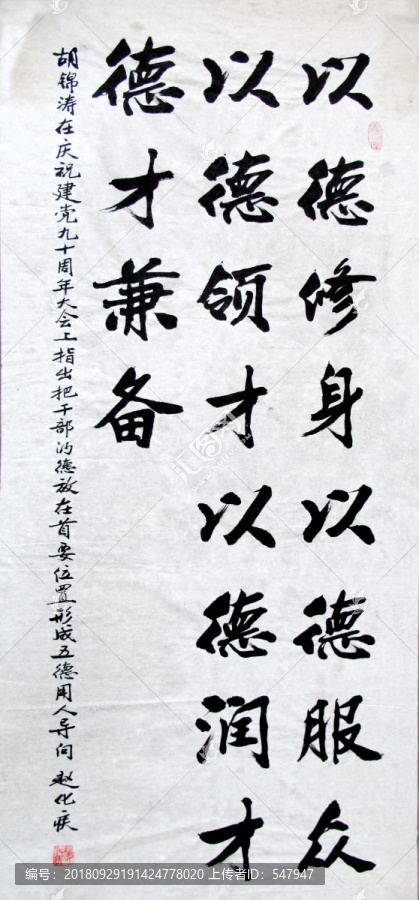 以德修身以德服众
以德领才以德润才
德才兼备
胡锦涛在庆祝建党九十周年大会上指出把干部的德放在首要位置形成五德用人导向 赵化
汇图网
编号：20180929191424778020 上传者ID：547947